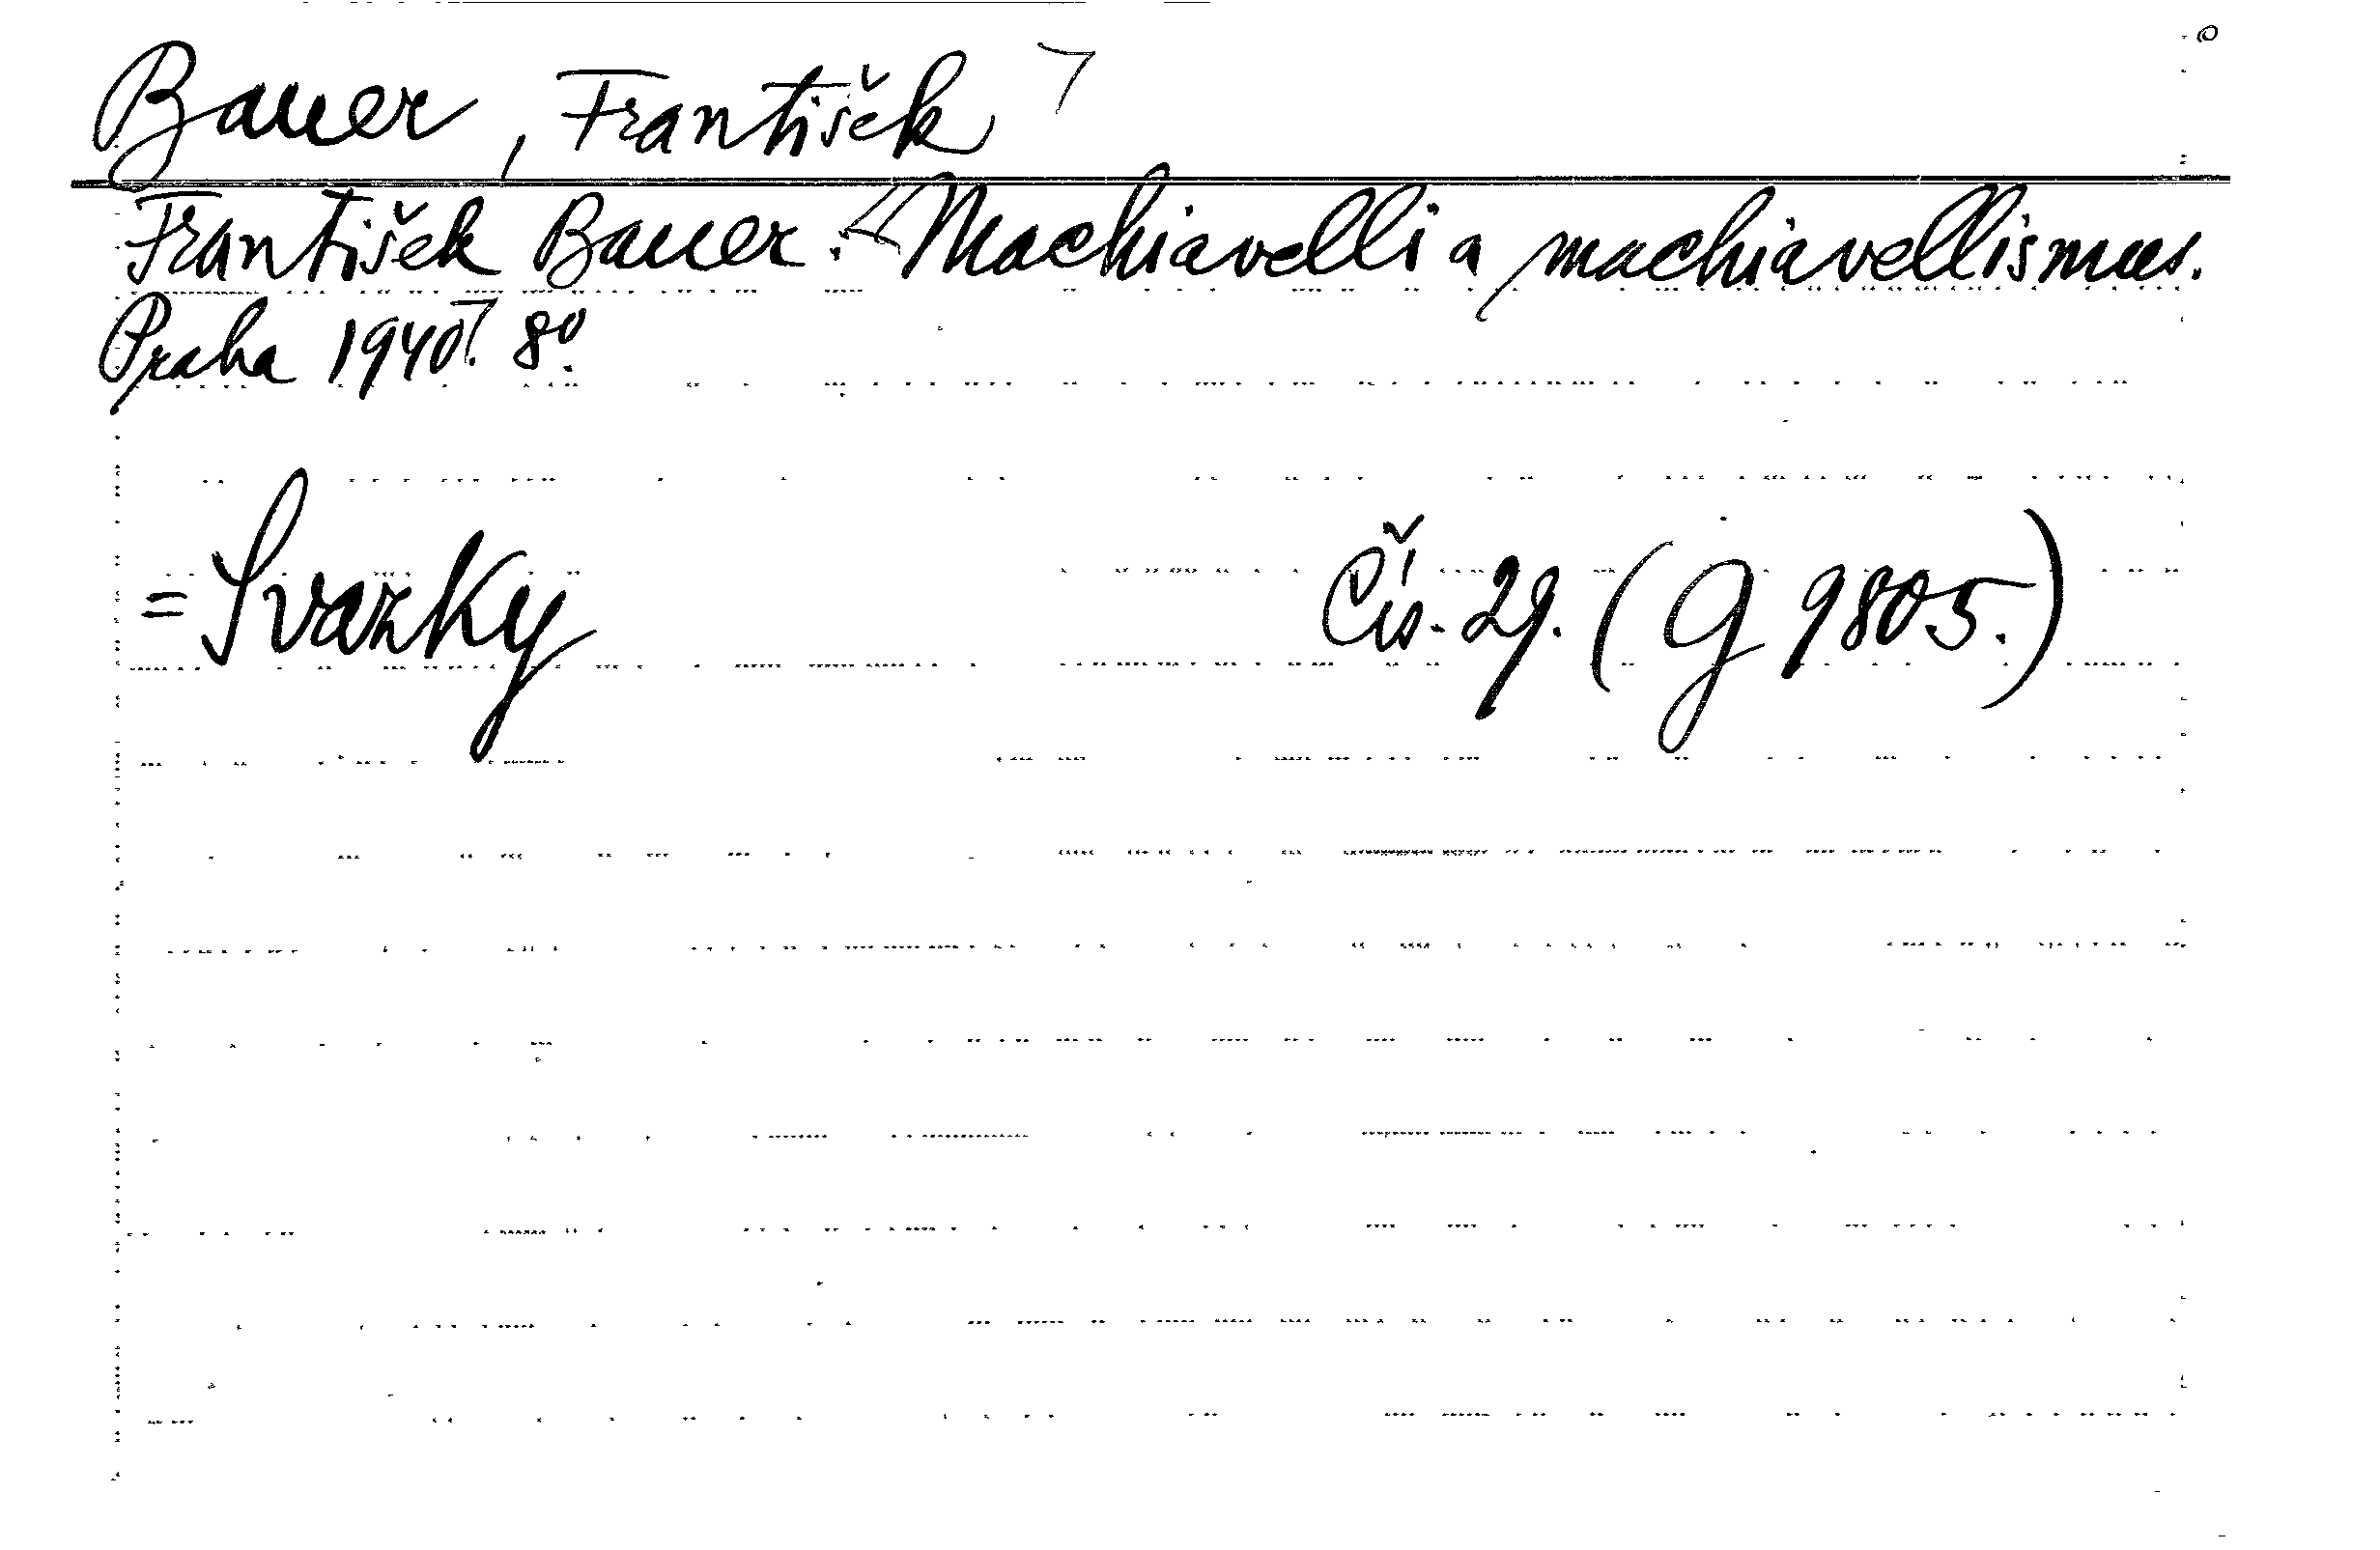 Bauer, František
František Bauer: Machiavelli a machiavellismus.
Praha 1940. 8º.
= Svazky Čís. 29. (G 9805.)